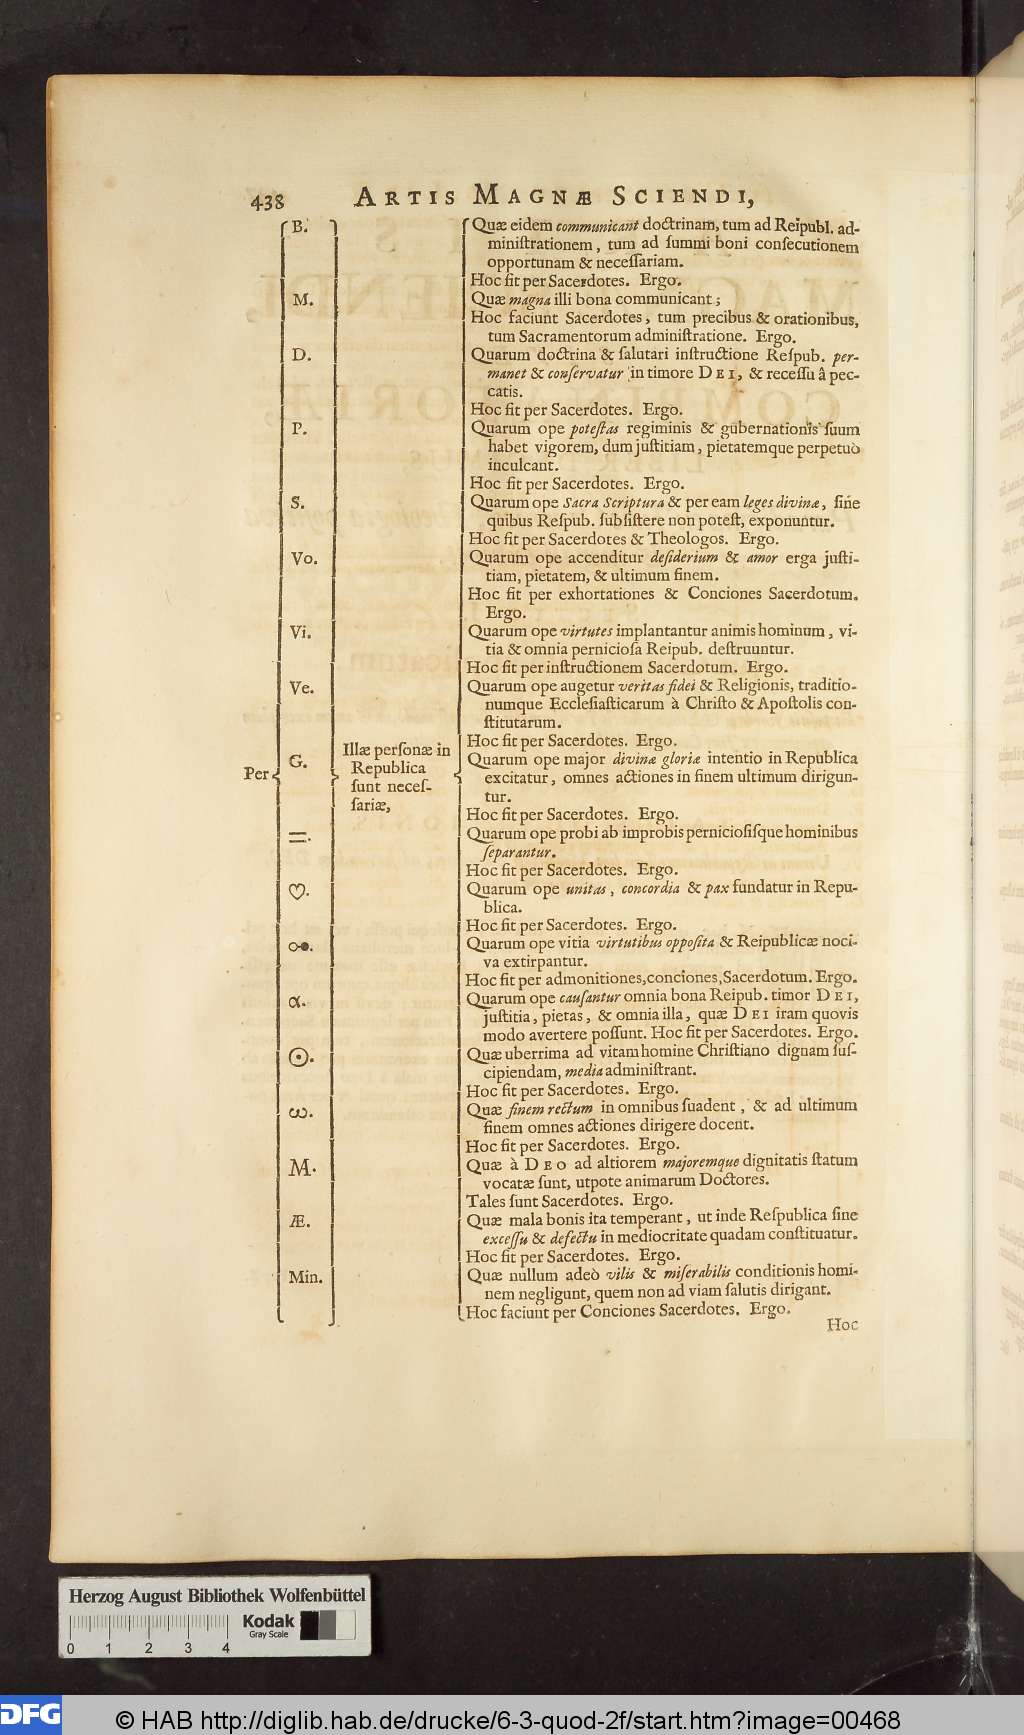 438 ARTIS MAGNÆ SCIENDI,
B. Quæ eidem communicant doctrinam, tum ad Reipubl. ad-
miniſtrationem, tum ad ſummi boni conſecutionem
opportunam & neceſſariam.
Hoc fit per Sacerdotes. Ergo.
M. Quæ magna illi bona communicant;
Hoc faciunt Sacerdotes, tum precibus & orationibus,
tum Sacramentorum adminiſtratione. Ergo.
D. Quarum doctrina & ſalutari inſtructione Reſpub. per-
manet & conſervatur in timore DEI, & receſſu â pec-
catis.
Hoc fit per Sacerdotes. Ergo.
P. Quarum ope poteſtas regiminis & gubernationis ſuum
habet vigorem, dum juſtitiam, pietatemque perpetuò
inculcant.
Hoc fit per Sacerdotes. Ergo.
S. Quarum ope Sacra Scriptura & per eam leges divinæ, ſine
quibus Reſpub. ſubſiſtere non poteſt, exponuntur.
Hoc fit per Sacerdotes & Theologos. Ergo.
Vo. Quarum ope accenditur deſiderium & amor erga juſti-
tiam, pietatem, & ultimum finem.
Hoc fit per exhortationes & Conciones Sacerdotum.
Ergo.
Vi. Quarum ope virtutes implantantur animis hominum, vi-
tia & omnia pernicioſa Reipub. deſtruuntur.
Hoc fit per inſtructionem Sacerdotum. Ergo.
Ve. Quarum ope augetur veritas fidei & Religionis, traditio-
numque Eccleſiaſticarum à Chriſto & Apoſtolis con-
ſtitutarum.
Hoc fit per Sacerdotes. Ergo.
Per
Illæ perſonæ in
Republica
ſunt neceſ-
ſariæ,
G. Quarum ope major divinæ gloriæ intentio in Republica
excitatur, omnes actiones in finem ultimum dirigun-
tur.
Hoc fit per Sacerdotes. Ergo.
=. Quarum ope probi ab improbis pernicioſiſque hominibus
ſeparantur.
Hoc fit per Sacerdotes. Ergo.
♡. Quarum ope unitas, concordia & pax fundatur in Repu-
blica.
Hoc fit per Sacerdotes. Ergo.
o-●. Quarum ope vitia virtutibus oppoſita & Reipublicæ noci-
va extirpantur.
Hoc fit per admonitiones, conciones, Sacerdotum. Ergo.
α. Quarum ope cauſantur omnia bona Reipub. timor DEI,
juſtitia, pietas, & omnia illa, quæ DEI iram quovis
modo avertere poſſunt. Hoc fit per Sacerdotes. Ergo.
☉. Quæ uberrima ad vitam homine Chriſtiano dignam ſuſ-
cipiendam, media adminiſtrant.
Hoc fit per Sacerdotes. Ergo.
ω. Quæ finem rectum in omnibus ſuadent, & ad ultimum
finem omnes actiones dirigere docent.
Hoc fit per Sacerdotes. Ergo.
M. Quæ à DEO ad altiorem majoremque dignitatis ſtatum
vocatæ ſunt, utpote animarum Doctores.
Tales ſunt Sacerdotes. Ergo.
Æ. Quæ mala bonis ita temperant, ut inde Reſpublica ſine
exceſſu & defectu in mediocritate quadam conſtituatur.
Hoc fit per Sacerdotes. Ergo.
Min. Quæ nullum adeò vilis & miſerabilis conditionis homi-
nem negligunt, quem non ad viam ſalutis dirigant.
Hoc faciunt per Conciones Sacerdotes. Ergo.
Hoc
Herzog August Bibliothek Wolfenbüttel
Kodak
Gray Scale
0 1 2 3 4
DFG © HAB http://diglib.hab.de/drucke/6-3-quod-2f/start.htm?image=00468